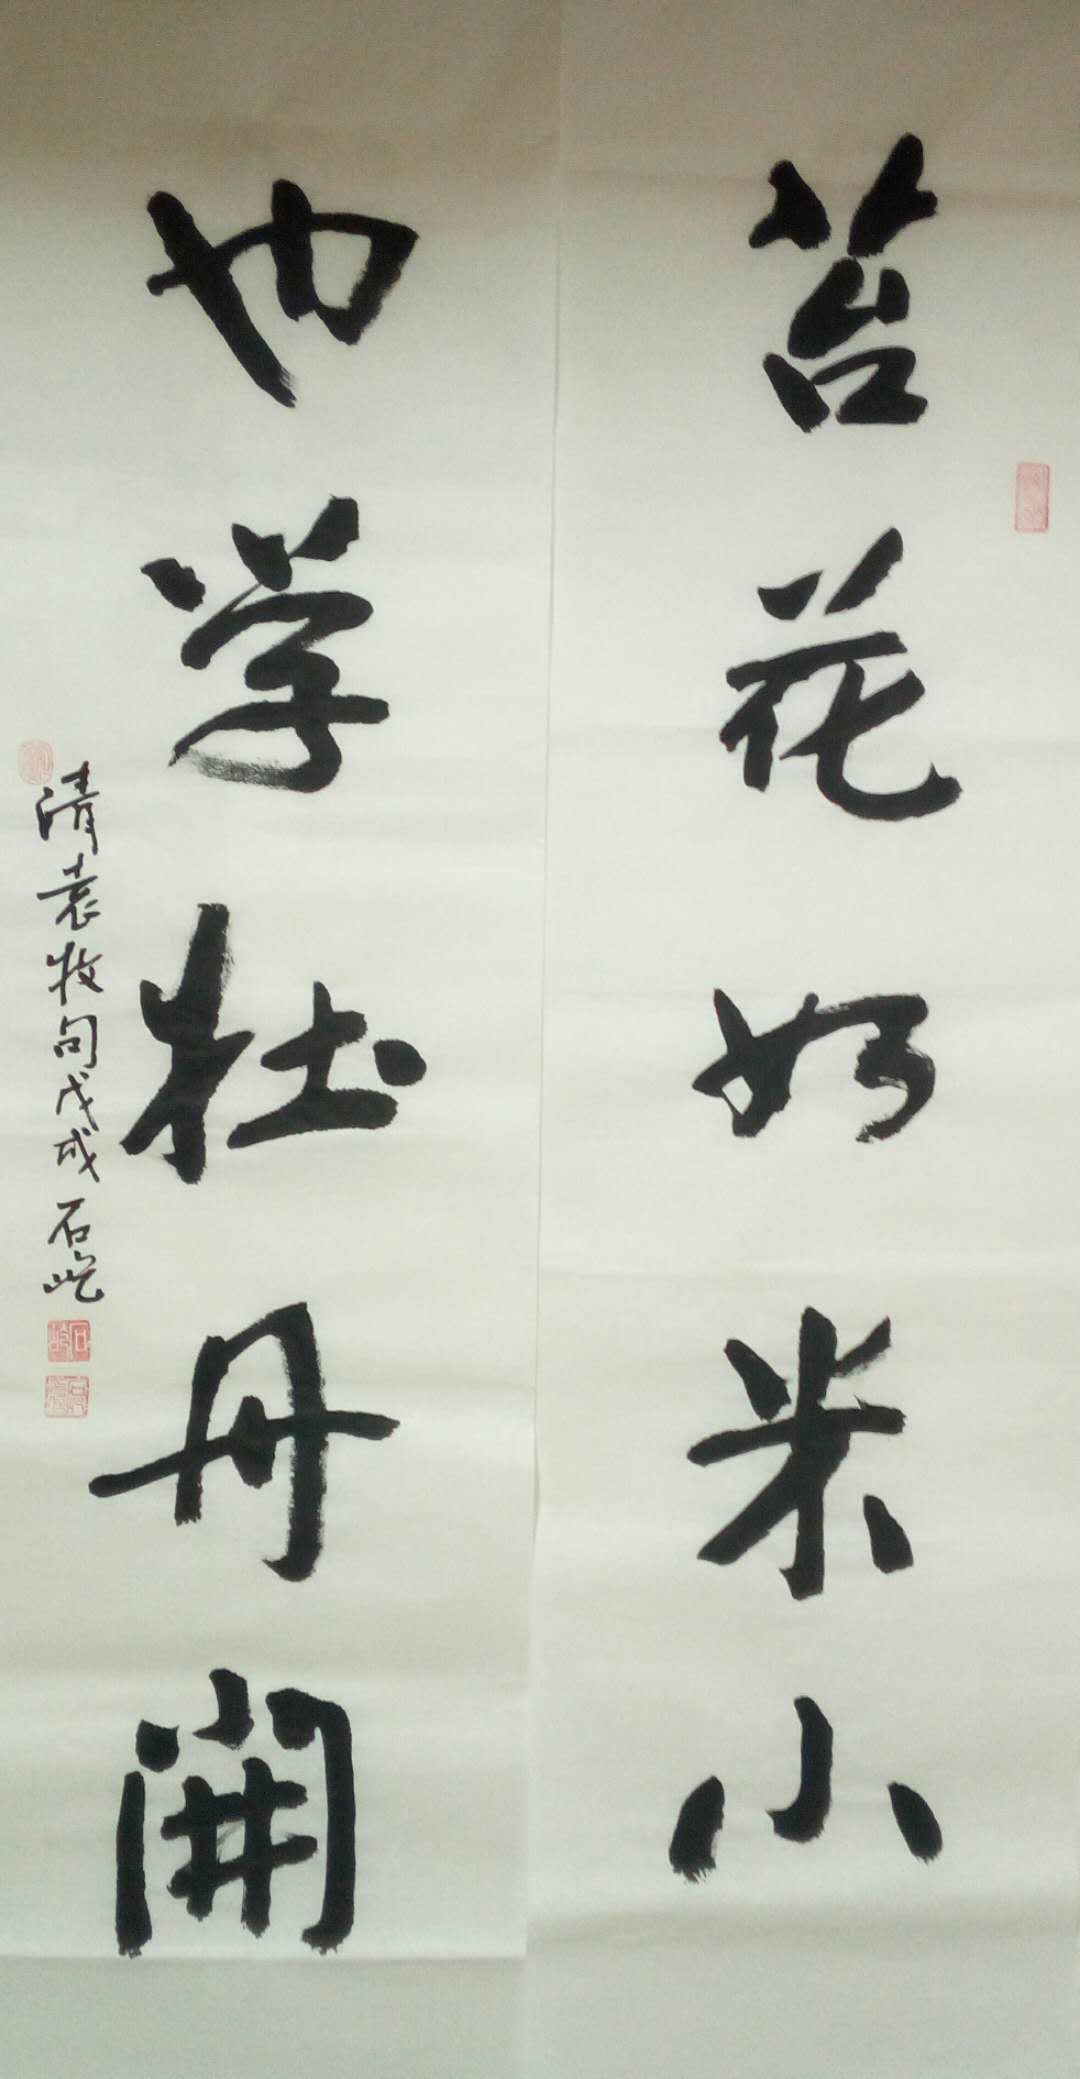 苔花如米小
也学牡丹開
清袁牧句戊戌石屹